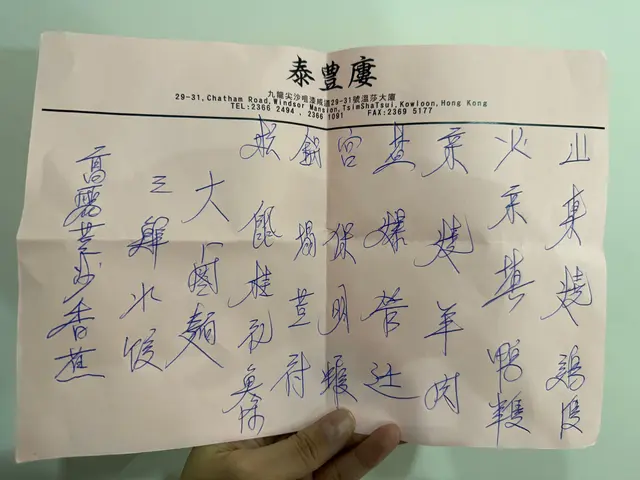 泰豐廔
九龍尖沙咀漆咸道29-31號溫莎大廈
29-31, Chatham Road, Windsor Mansion, TsimShaTsui, Kowloon, Hong Kong
TEL:2366 2494 , 2366 1091 FAX:2369 5177
山東燒鷄
京填鴨
京燒羊肉
爆管廷
宮保明蝦
鍋塌荳府
桂花魚
大麵
三鮮水餃
高麗荳沙香蕉